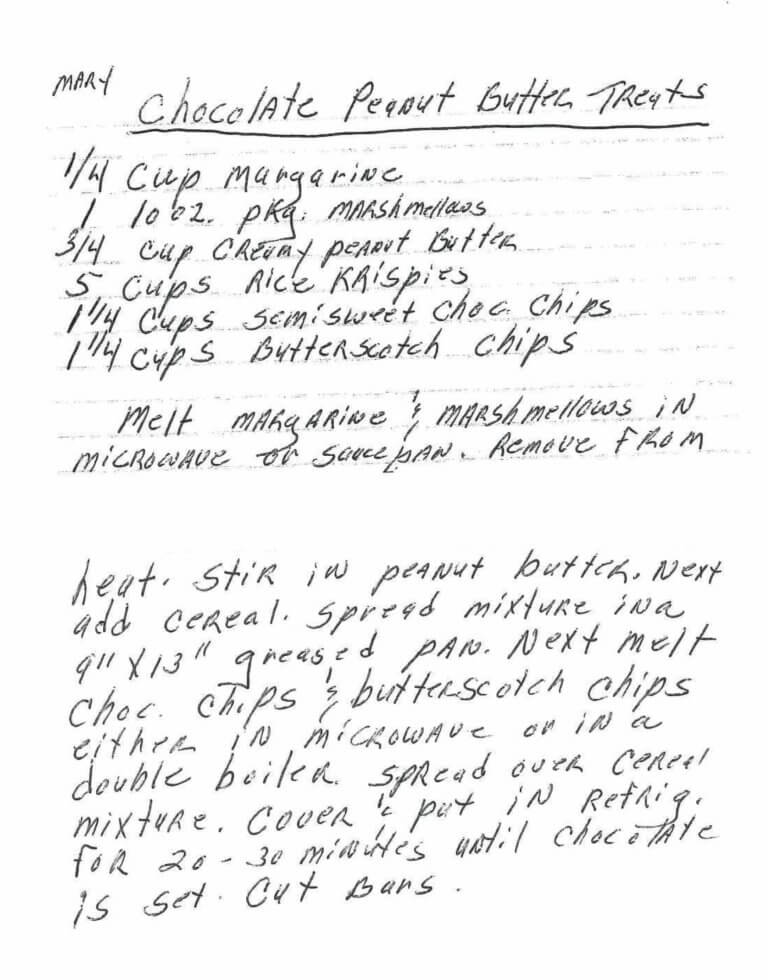 MARY
Chocolate Peanut Butter Treats
1/4 Cup Margarine
1 10 oz. pkg. MARSHmellows
3/4 Cup Creamy peanut Butter
5 Cups Rice Krispies
1 1/4 Cups semisweet choc. chips
1 1/4 cups Butterscotch chips
Melt margarine & marshmellows in
microwave or saucepan. Remove from
heat. Stir in peanut butter. Next
add cereal. Spread mixture in a
9" x 13" greased pan. Next melt
choc. chips & butterscotch chips
either in microwave or in a
double boiler. Spread over cereal
mixture. Cover & put in Refrig.
for 20 - 30 minutes until chocolate
is set. Cut Bars.